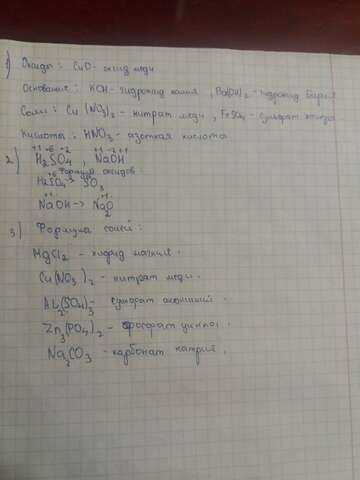 1) Оксиды: CuO - оксид меди
Основание: KOH - гидроксид калия, Ba(OH)2 - гидроксид бария
Соли: Cu(NO3)2 - нитрат меди, FeSO4 - сульфат железа
Кислоты: HNO3 - азотная кислота
+1 +6 -2 +1 -2 +1
2) H2SO4, NaOH
Формулы оксидов:
+6
H2SO4 -> SO3
+1 +1
NaOH -> Na2O
3) Формула солей:
MgCl2 - хлорид магния.
Cu(NO3)2 - нитрат меди.
Al2(SO4)3 - сульфат алюминий.
Zn3(PO4)2 - фосфат цинка.
Na2CO3 - карбонат натрий.